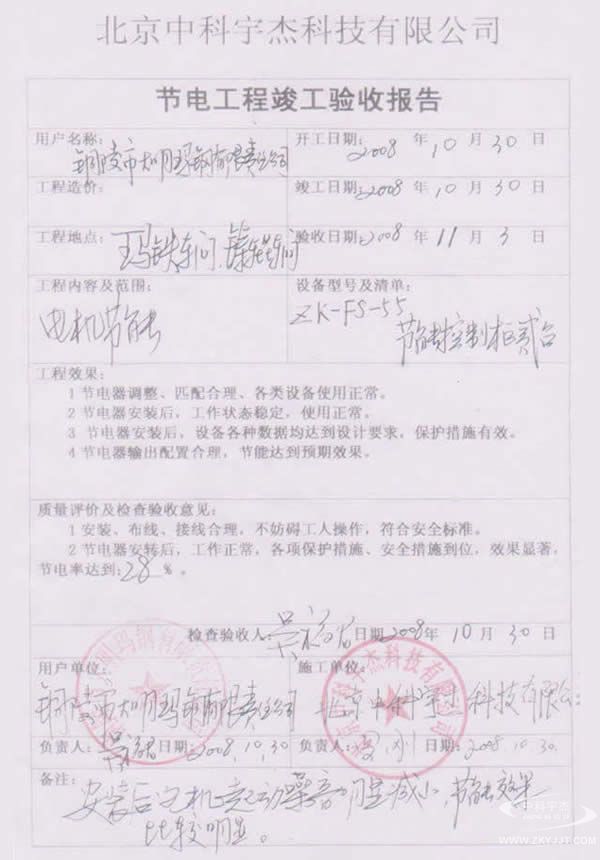 北京中科宇杰科技有限公司
节电工程竣工验收报告
用户名称: 开工日期: 2008 年 10 月 30 日
铜陵市大明玛钢有限责任公司
工程造价: 竣工日期: 2008 年 10 月 30 日
工程地点: 玛铁车间、 车间 验收日期: 2008 年 11 月 3 日
工程内容及范围: 设备型号及清单:
电机节能 ZK-FS-55
节能控制柜贰台
工程效果:
1 节电器调整、匹配合理、各类设备使用正常。
2 节电器安装后,工作状态稳定,使用正常。
3 节电器安装后,设备各种数据均达到设计要求,保护措施有效。
4 节电器输出配置合理,节能达到预期效果。
质量评价及检查验收意见:
1 安装、布线、接线合理,不妨碍工人操作,符合安全标准。
2 节电器安转后,工作正常,各项保护措施、安全措施到位,效果显著,
节电率达到: 28 %。
检查验收人: 日期 2008 年 10 月 30 日
用户单位: 施工单位:
铜陵市大明玛钢有限责任公司 北京中科宇杰科技有限公司
负责人: 日期: 2008.10.30 负责人: 日期: 2008.10.30.
备注: 安装后电机起动噪音明显减小,节能效果
比较明显。
中科宇杰
WWW.ZKYJJT.COM